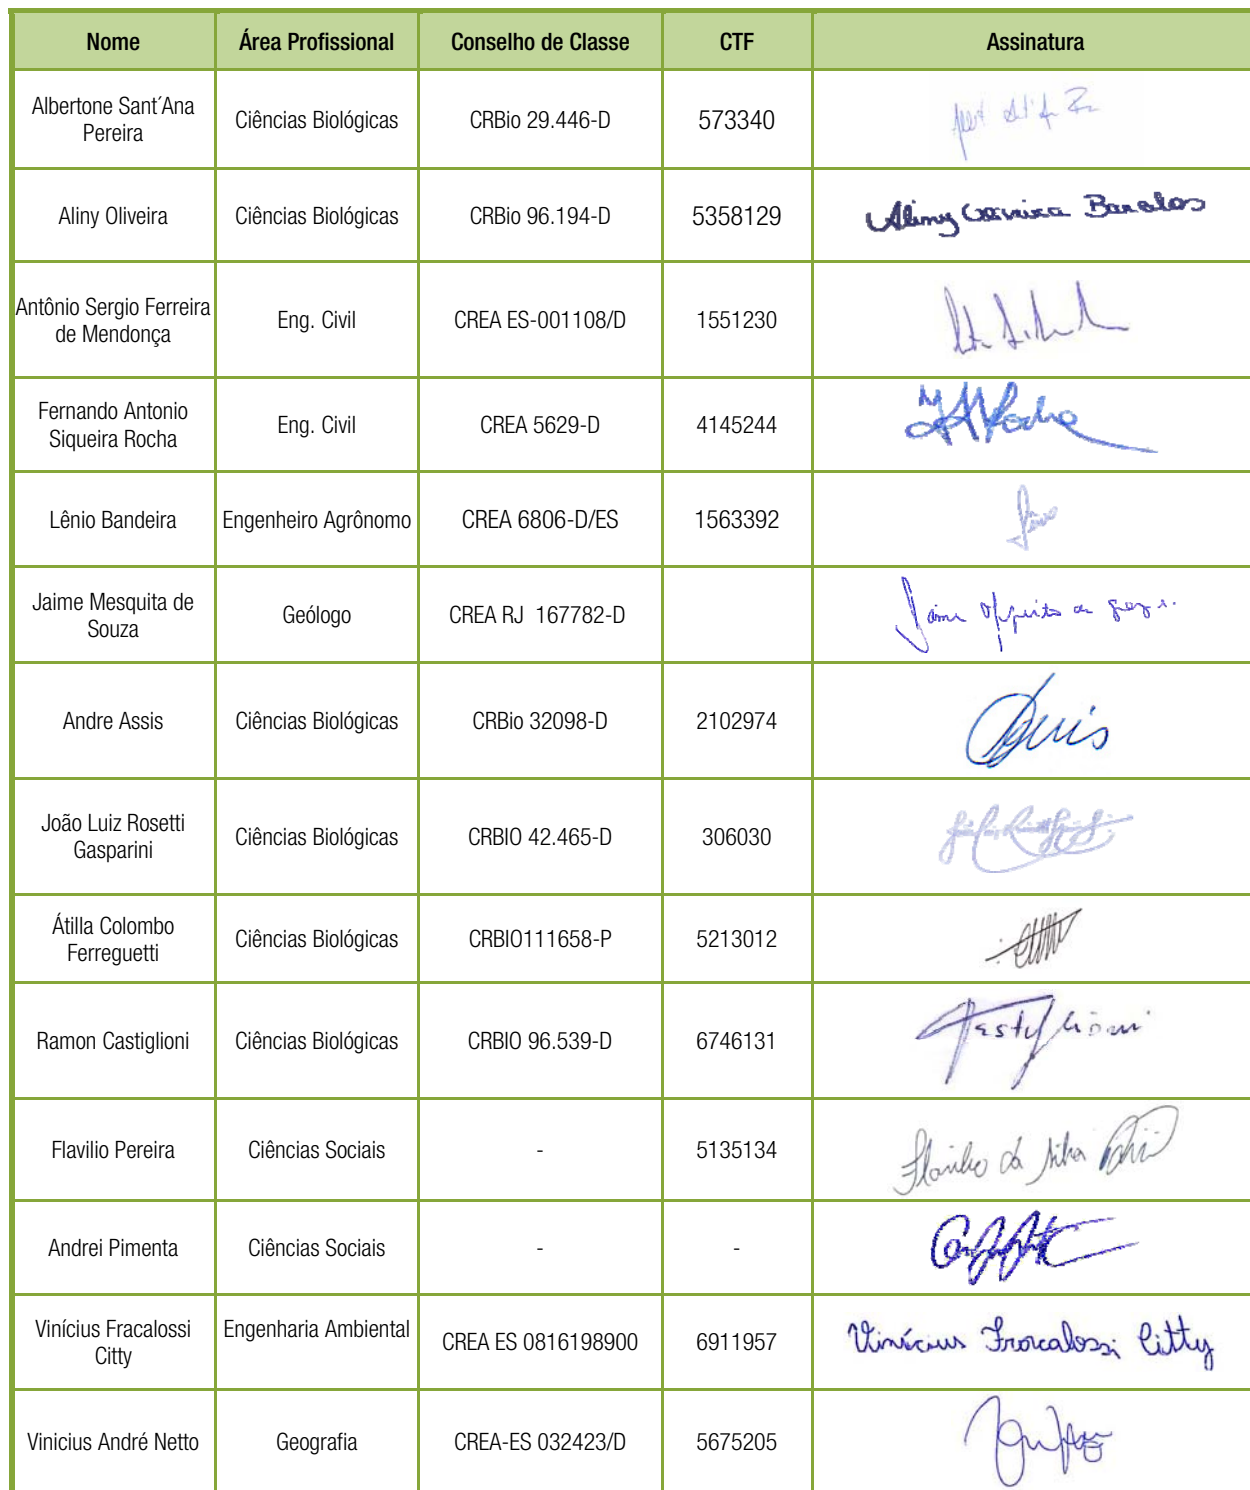 Nome Área Profissional Conselho de Classe CTF Assinatura
Albertone Sant´Ana
Pereira
Ciências Biológicas CRBio 29.446-D 573340
Aliny Oliveira Ciências Biológicas CRBio 96.194-D 5358129 Aliny Oliveira
Antônio Sergio Ferreira
de Mendonça
Eng. Civil CREA ES-001108/D 1551230
Fernando Antonio
Siqueira Rocha
Eng. Civil CREA 5629-D 4145244
Lênio Bandeira Engenheiro Agrônomo CREA 6806-D/ES 1563392
Jaime Mesquita de
Souza
Geólogo CREA RJ 167782-D
Andre Assis Ciências Biológicas CRBio 32098-D 2102974
João Luiz Rosetti
Gasparini
Ciências Biológicas CRBIO 42.465-D 306030
Átilla Colombo
Ferreguetti
Ciências Biológicas CRBIO111658-P 5213012
Ramon Castiglioni Ciências Biológicas CRBIO 96.539-D 6746131
Flavilio Pereira Ciências Sociais - 5135134 Flavilio da Silva
Andrei Pimenta Ciências Sociais - -
Vinícius Fracalossi
Citty
Engenharia Ambiental CREA ES 0816198900 6911957 Vinícius Fracalossi Citty
Vinicius André Netto Geografia CREA-ES 032423/D 5675205